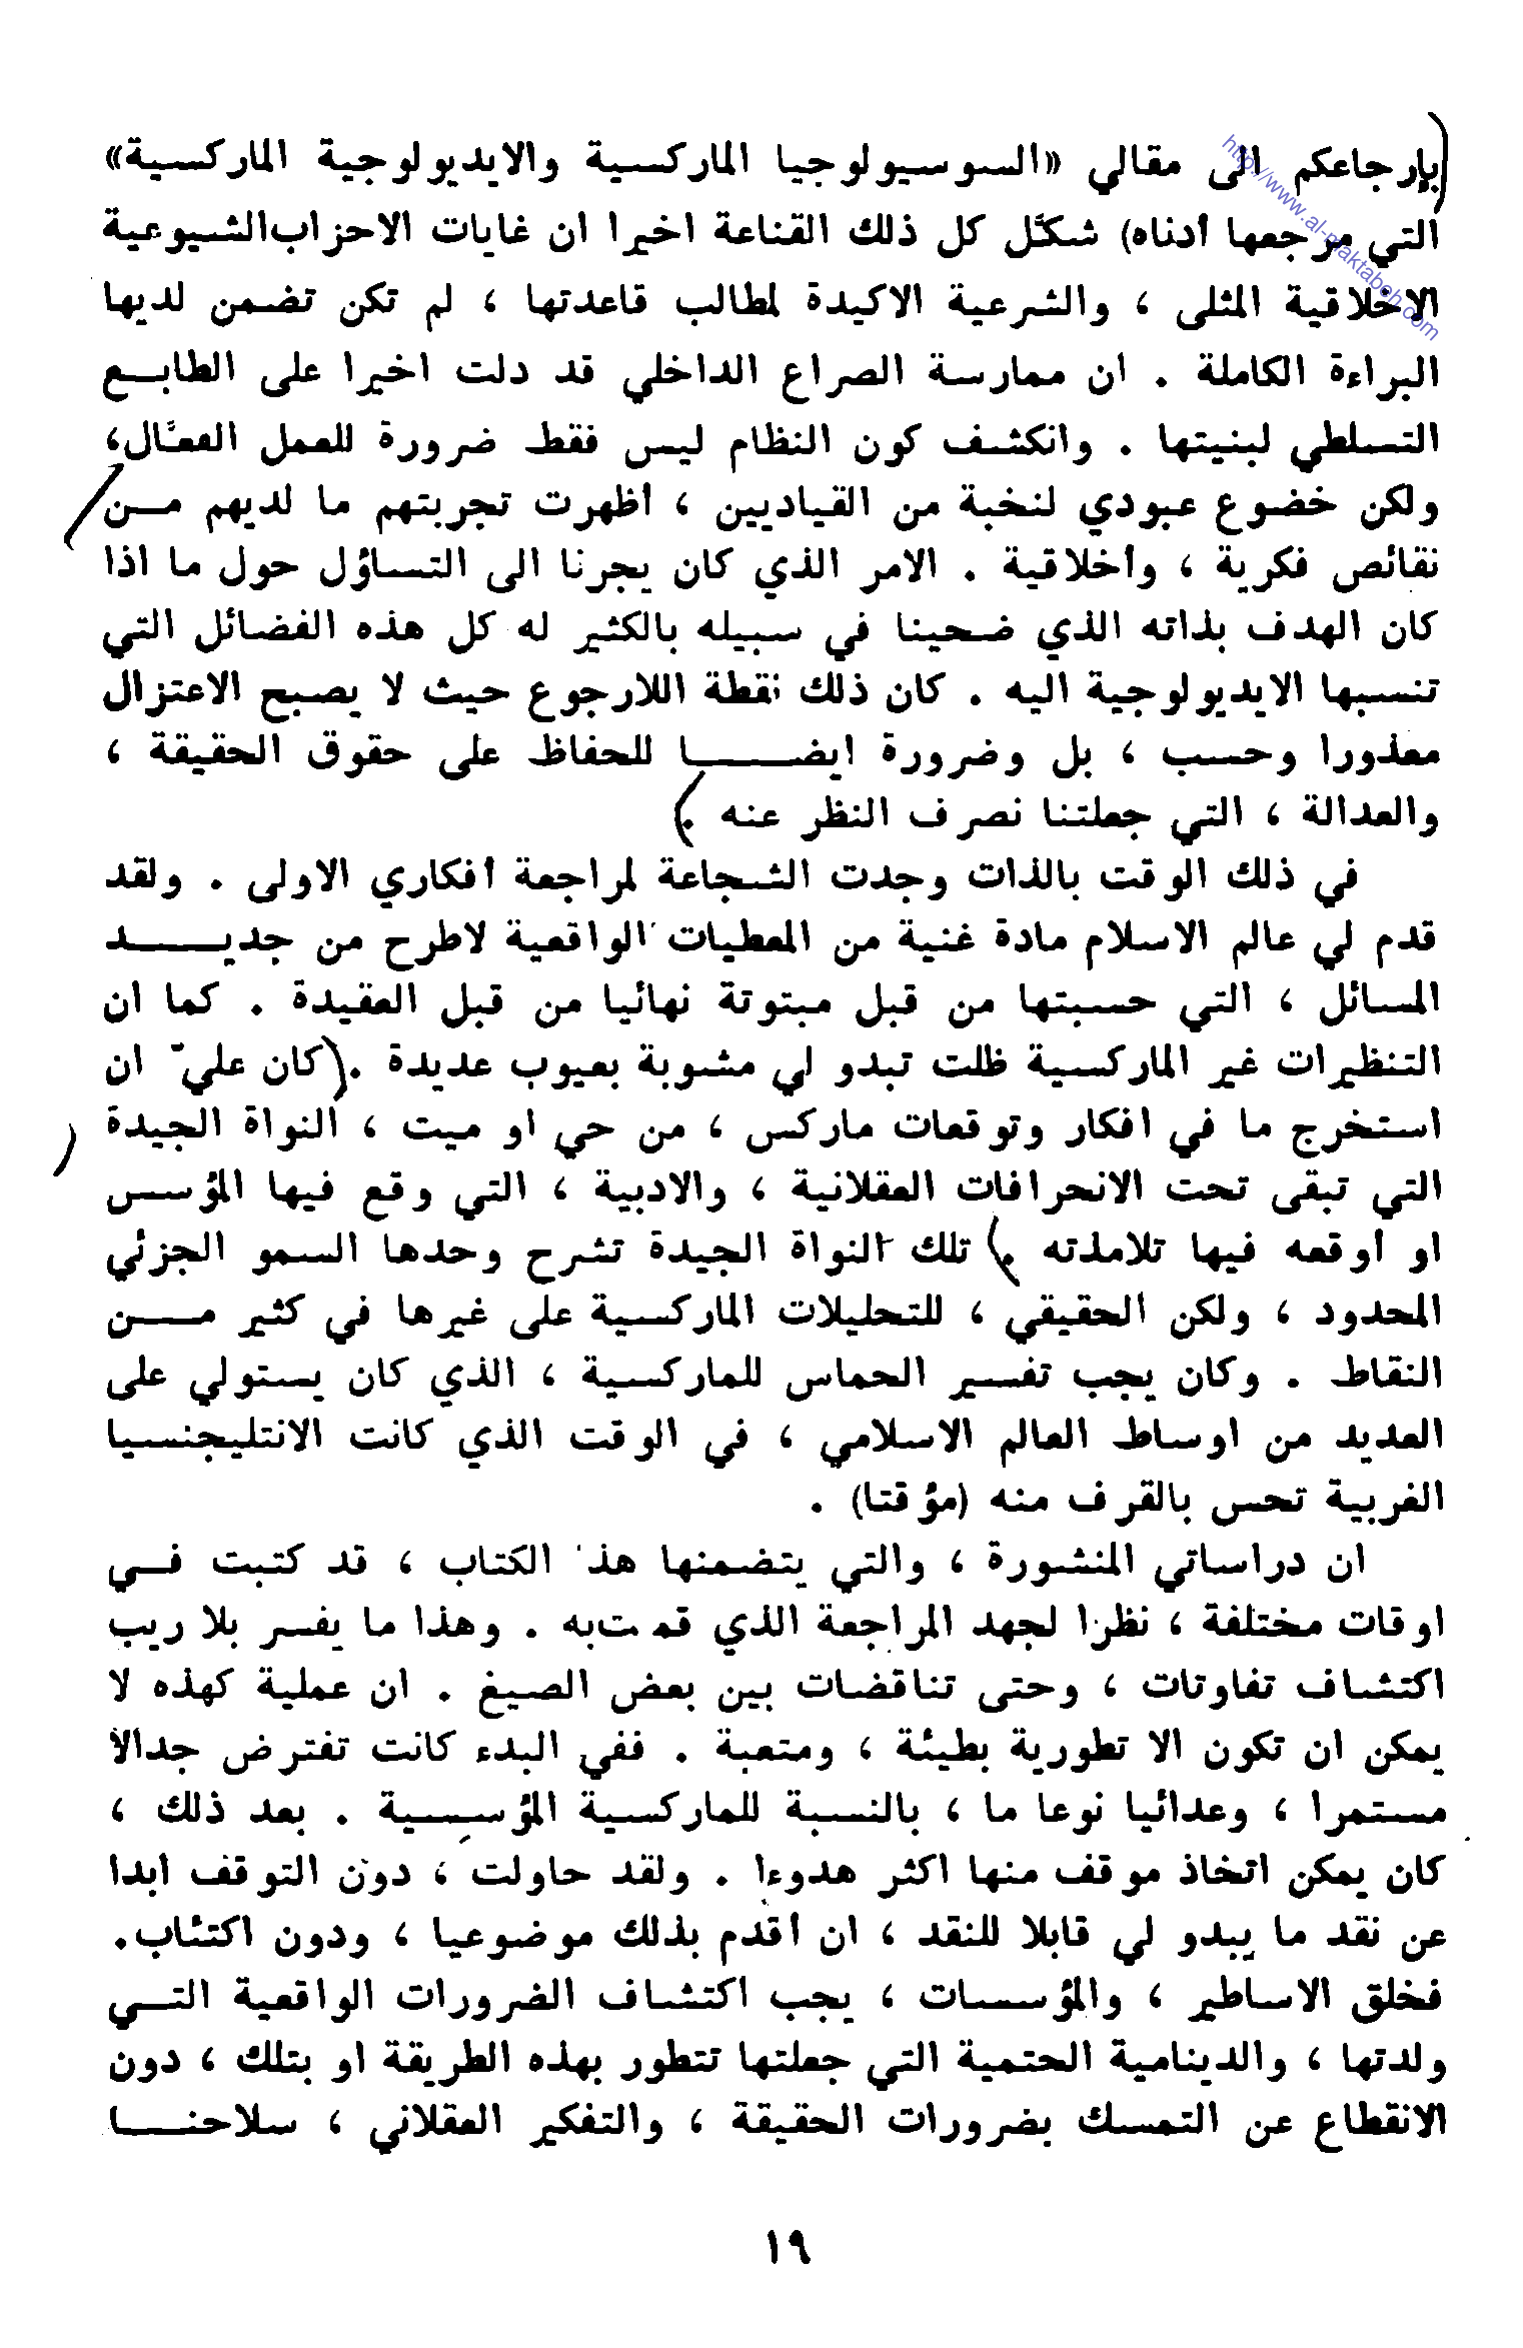 بإرجاعكم الى مقالي «السوسيولوجيا الماركسية والايديولوجية الماركسية»
التي مرجعها أدناه) شكّل كل ذلك القناعة اخيرا ان غايات الاحزاب الشيوعية
الاخلاقية المثلى ، والشرعية الاكيدة لمطالب قاعدتها ، لم تكن تضمن لديها
البراءة الكاملة . ان ممارسة الصراع الداخلي قد دلت اخيرا على الطابع
التسلطي لبنيتها . وانكشف كون النظام ليس فقط ضرورة للعمل الفعّال،
ولكن خضوع عبودي لنخبة من القياديين ، أظهرت تجربتهم ما لديهم من
نقائص فكرية ، وأخلاقية . الامر الذي كان يجرنا الى التساؤل حول ما اذا
كان الهدف بذاته الذي ضحينا في سبيله بالكثير له كل هذه الفضائل التي
تنسبها الايديولوجية اليه . كان ذلك نقطة اللارجوع حيث لا يصبح الاعتزال
معذورا وحسب ، بل وضرورة ايضا للحفاظ على حقوق الحقيقة ،
والعدالة ، التي جعلتنا نصرف النظر عنه .
في ذلك الوقت بالذات وجدت الشجاعة لمراجعة أفكاري الاولى . ولقد
قدم لي عالم الاسلام مادة غنية من المعطيات الواقعية لاطرح من جديد
المسائل ، التي حسبتها من قبل مبتوتة نهائيا من قبل العقيدة . كما ان
التنظيرات غير الماركسية ظلت تبدو لي مشوبة بعيوب عديدة . كان عليّ ان
استخرج ما في افكار وتوقعات ماركس ، من حي او ميت ، النواة الجيدة
التي تبقى تحت الانحرافات العقلانية ، والادبية ، التي وقع فيها المؤسس
او أوقعه فيها تلامذته . تلك النواة الجيدة تشرح وحدها السمو الجزئي
المحدود ، ولكن الحقيقي ، للتحليلات الماركسية على غيرها في كثير من
النقاط . وكان يجب تفسير الحماس للماركسية ، الذي كان يستولي على
العديد من اوساط العالم الاسلامي ، في الوقت الذي كانت الانتليجنسيا
الغربية تحس بالقرف منه (مؤقتا) .
ان دراساتي المنشورة ، والتي يتضمنها هذا الكتاب ، قد كتبت في
اوقات مختلفة ، نظرا لجهد المراجعة الذي قمت به . وهذا ما يفسر بلا ريب
اكتشاف تفاوتات ، وحتى تناقضات بين بعض الصيغ . ان عملية كهذه لا
يمكن ان تكون الا تطورية بطيئة ، ومتعبة . ففي البدء كانت تفترض جدالا
مستمرا ، وعدائيا نوعا ما ، بالنسبة للماركسية المؤسسية . بعد ذلك ،
كان يمكن اتخاذ موقف منها اكثر هدوءا . ولقد حاولت ، دون التوقف ابدا
عن نقد ما يبدو لي قابلا للنقد ، ان أقدم بذلك موضوعيا ، ودون اكتئاب.
فخلق الاساطير ، والمؤسسات ، يجب اكتشاف الضرورات الواقعية التي
ولدتها ، والدينامية الحتمية التي جعلتها تتطور بهذه الطريقة او بتلك ، دون
الانقطاع عن التمسك بضرورات الحقيقة ، والتفكير العقلاني ، سلاحنا
١٩
http://www.al-maktabeh.com